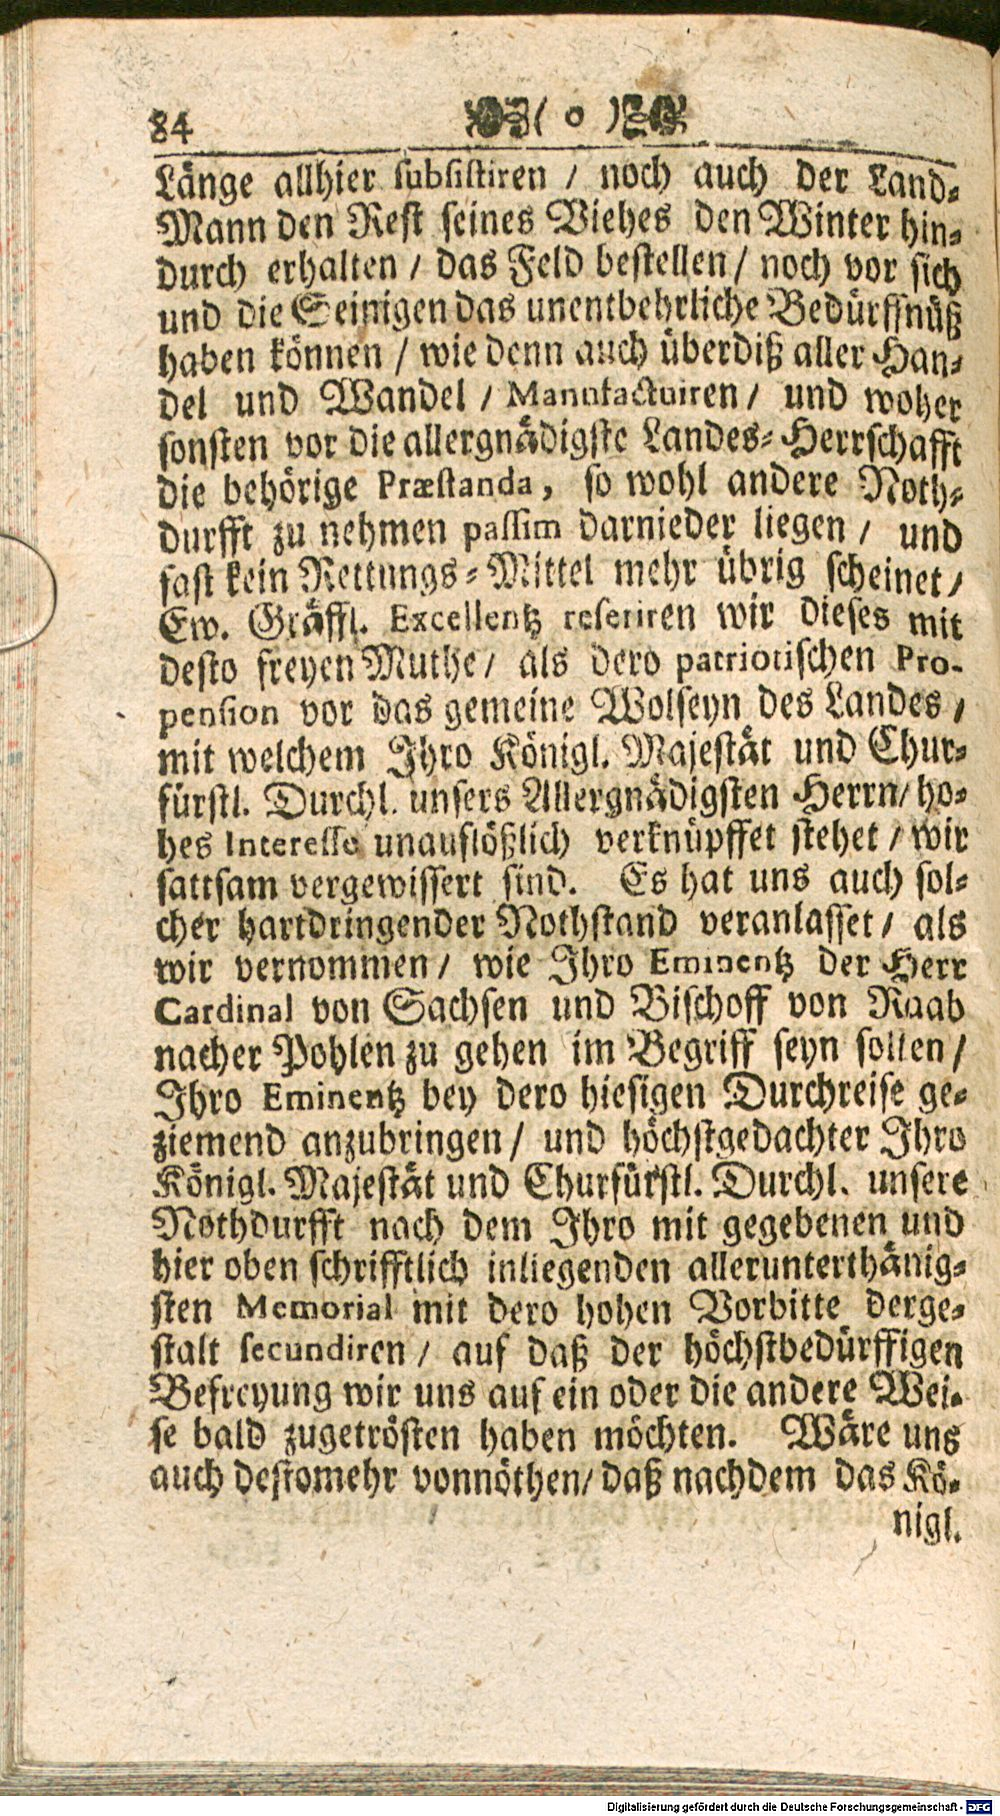 84 ( o )
Länge allhier subsistiren / noch auch der Land-
Mann den Rest seines Viehes den Winter hin-
durch erhalten / das Feld bestellen / noch vor sich
und die Seinigen das unentbehrliche Bedürffnüß
haben können / wie denn auch überdiß aller Han-
del und Wandel / Manufactuiren / und woher
sonsten vor die allergnädigste Landes-Herrschafft
die behörige Præstanda, so wohl andere Noth-
durfft zu nehmen passim darnieder liegen / und
fast kein Rettungs-Mittel mehr übrig scheinet /
Ew. Gräffl. Excellentz referiren wir dieses mit
desto freyen Muthe / als dero patriotischen Pro-
pension vor das gemeine Wolseyn des Landes /
mit welchem Ihro Königl. Majestät und Chur-
fürstl. Durchl. unsers Allergnädigsten Herrn / ho-
hes Interesse unauflößlich verknüpffet stehet / wir
sattsam vergewissert sind. Es hat uns auch sol-
cher hartdringender Nothstand veranlasset / als
wir vernommen / wie Ihro Eminentz der Herr
Cardinal von Sachsen und Bischoff von Raab
nacher Pohlen zu gehen im Begriff seyn sollen /
Ihro Eminentz bey dero hiesigen Durchreise ge-
ziemend anzubringen / und höchstgedachter Ihro
Königl. Majestät und Churfürstl. Durchl. unsere
Nothdurfft nach dem Ihro mit gegebenen und
hier oben schrifftlich inliegenden allerunterthänig-
sten Memorial mit dero hohen Vorbitte derge-
stalt secundiren / auf daß der höchstbedürffigen
Befreyung wir uns auf ein oder die andere Wei-
se bald zugetrösten haben möchten. Wäre uns
auch destomehr vonnöthen / daß nachdem das Kö-
nigl.
Digitalisierung gefördert durch die Deutsche Forschungsgemeinschaft - DFG